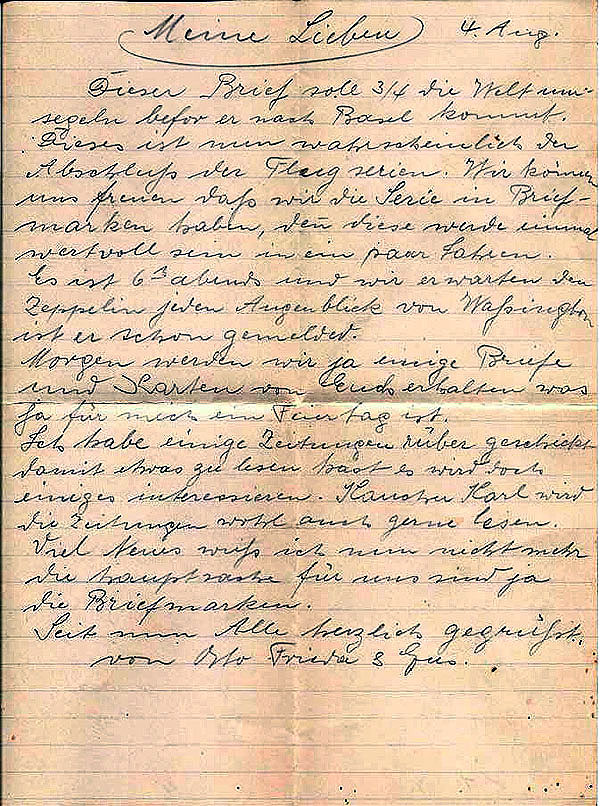 Meine Lieben 4. Aug.
Dieser Brief soll 3/4 die Welt um-
segeln befor er nach Basel kommt.
Dieses ist nun wahrscheinlich der
Abschluß der Flugserien. Wir können
uns freuen daß wir die Serie in Brief-
marken haben, deñ diese werde einmal
wertvoll sein in ein paar Jahren.
Es ist 6 abends und wir erwarten den
Zeppelin jeden Augenblick von Waßington
ist er schon gemelded.
Morgen werden wir ja einige Briefe
und Karten von Euch erhalten was
ja für mich ein Feiertag ist.
Ich habe einige Zeitungen rüber geschickt
damit etwas zu lesen hast es wird doch
einiges interessieren. Karl wird
die Zeitungen wohl auch gerne lesen.
Viel Neues weiß ich nun nicht mehr
die hauptsache für uns sind ja
die Briefmarken.
Seit nun Alle herzlich gegrüßt.
von Otto Frieda &